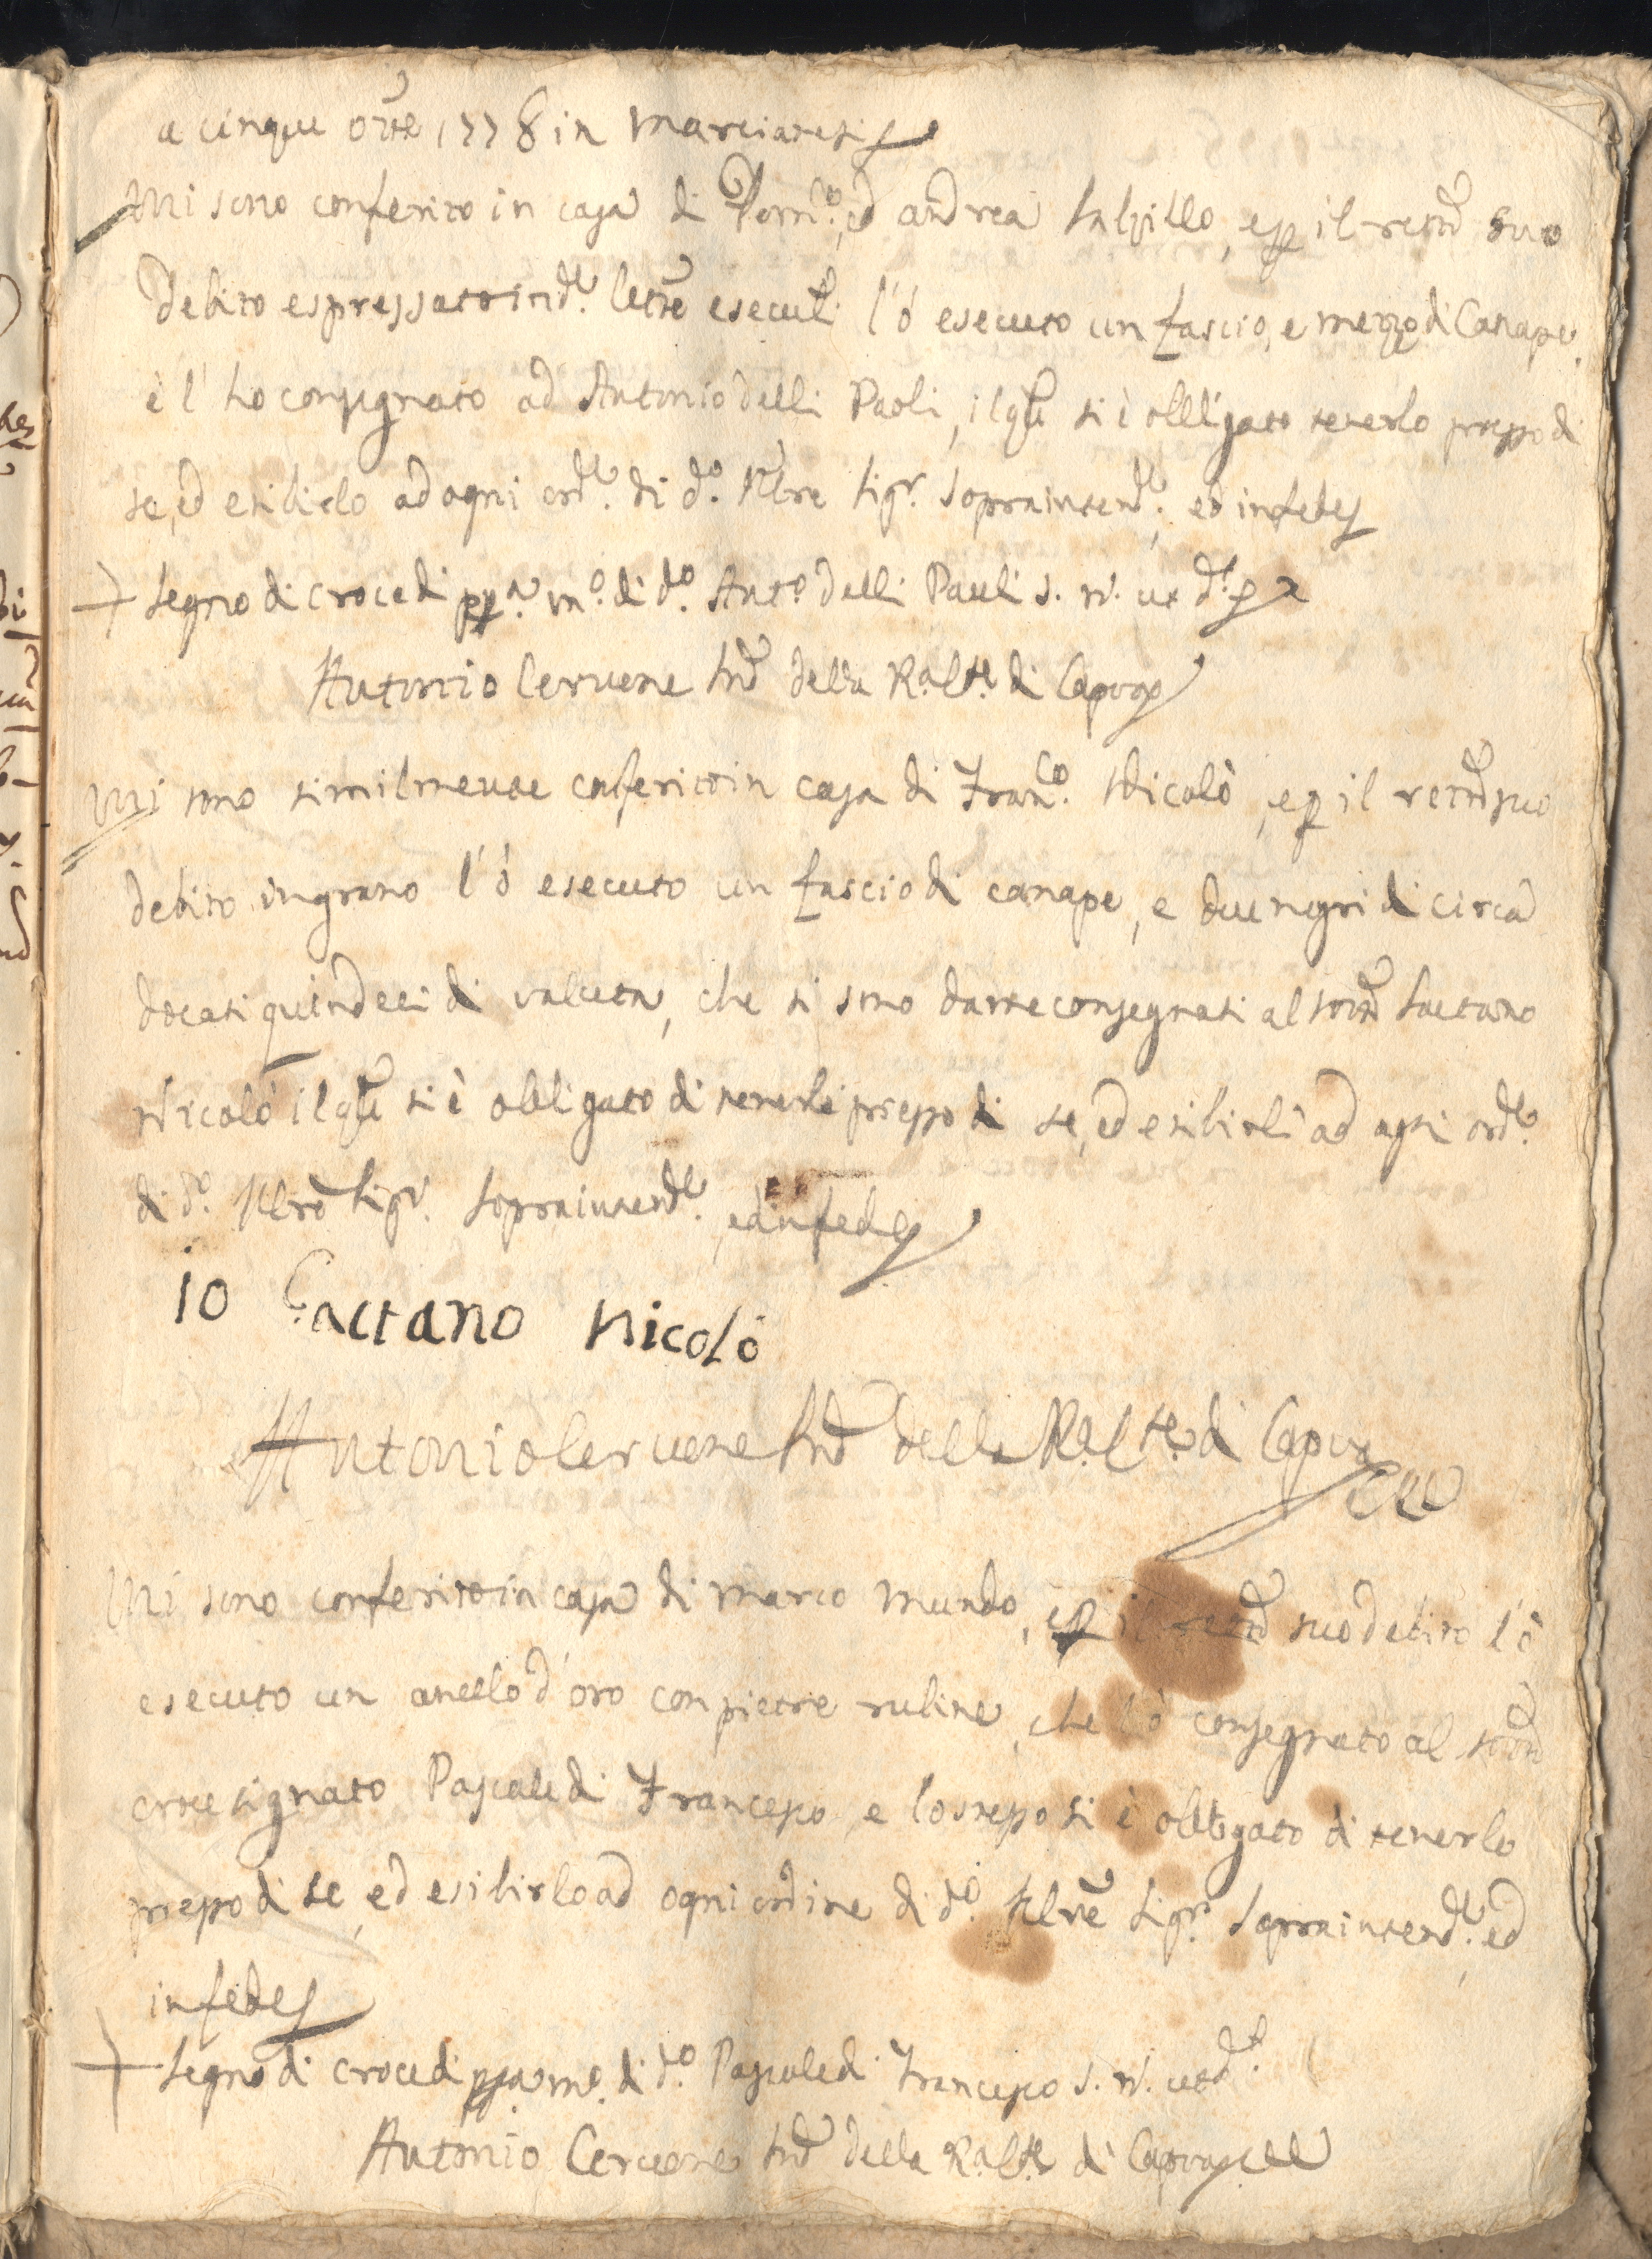 a cinque 8bre 1778 in Marcianesi
Mi sono conferito in casa di Dom.co, ed Andrea Salzillo, e p il rettnd suo
debito espressato in d.e lettre esecut.li l'ò esecuto un fascio, e mezzo di Canape,
e l'ho consegnato ad Antonio delli Paoli, il qle si è obligato tenerlo presso di
se, ed esibirlo ad ogni ord.e di d.o Illre Sigr. Sopraintend.e, ed in fede
+ Segno di croce di ppa m.o di d.o Ant.o delli Pauli s. n. ut d.t
Antonio Cervone Snd della R.al C.te di Capoa
Mi sono similmente conferito in casa di Fran.co Nicolò, e p il rettnd suo
debito in grano l'ò esecuto un fascio di canape, e due negri di circa
docati quindeci di valuta, che si sono da me consegnati al sottnd Gaetano
Nicolò il qle si è obligato di tenerli presso di se, ed esibirli ad ogni ord.e
di d.o Illre Sigr. Sopraintend.e, ed in fede
io Gaetano Nicolò
Antonio Cervone Snd della R.al C.te di Capoa
Mi sono conferito in casa di Marco Mundo, e p il rettnd suo debito l'ò
esecuto un anello d'oro con pietre rubine, che l'ò consegnato al sottnd
crocesignato Pascale di Francesco, e lo stesso si è obligato di tenerlo
presso di se, ed esibirlo ad ogni ordine di d.o Illre Sigr. Sopraintend.e, ed
in fede
+ Segno di croce di ppa m.o di d.o Pascale di Francesco s. n. ut d.t
Antonio Cervone Snd della R.al C.te di Capoa